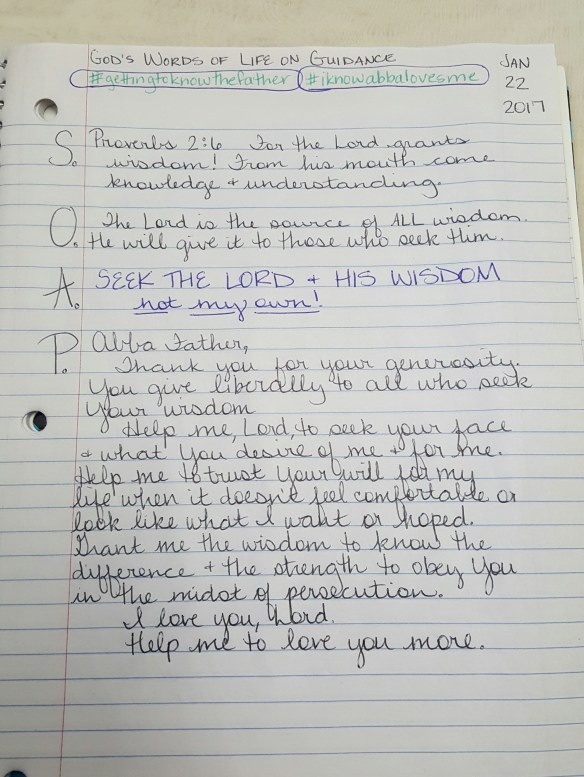 GOD'S WORDS OF LIFE ON GUIDANCE
#gettingtoknowthefather #iknowabbalovesme
JAN
22
2017
S. Proverbs 2:6 For the Lord grants
wisdom! From his mouth come
knowledge + understanding.
O. The Lord is the source of ALL wisdom.
He will give it to those who seek Him.
A. SEEK THE LORD + HIS WISDOM
not my own!
P. Abba Father,
Thank you for your generosity.
You give liberally to all who seek
Your wisdom
Help me, Lord, to seek your face
+ what You desire of me + for me.
Help me to trust Your will for my
life when it doesn't feel comfortable or
look like what I want or hoped.
Grant me the wisdom to know the
difference + the strength to obey You
in the midst of persecution.
I love you, Lord.
Help me to love you more.